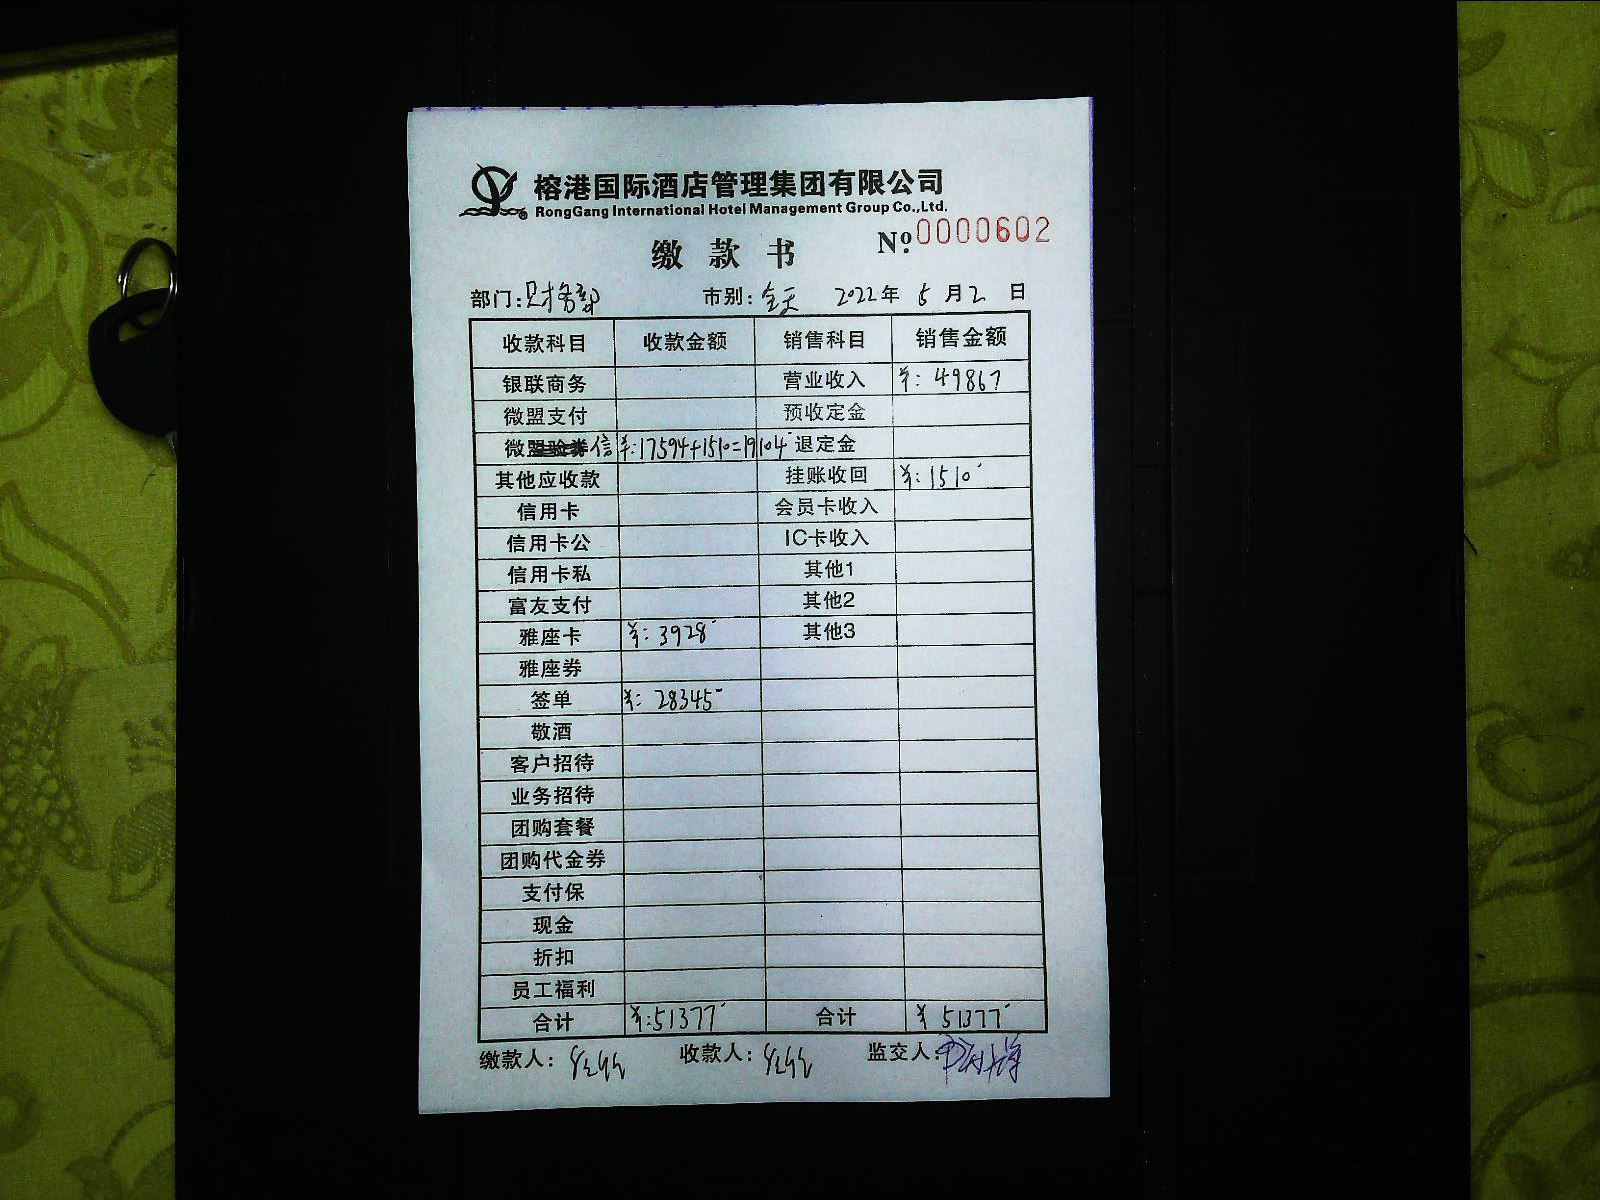 榕港国际酒店管理集团有限公司
RongGang International Hotel Management Group Co.,Ltd.
缴款书 № 0000602
部门:财务部 市别:全天 2022年 5月2日
收款科目 收款金额 销售科目 销售金额
银联商务 营业收入 ¥: 49867
微盟支付 预收定金
微信 ¥:17594+1510=19104 退定金
其他应收款 挂账收回 ¥:1510
信用卡 会员卡收入
信用卡公 IC卡收入
信用卡私 其他1
富友支付 其他2
雅座卡 ¥: 3928 其他3
雅座券
签单 ¥: 28345
敬酒
客户招待
业务招待
团购套餐
团购代金券
支付保
现金
折扣
员工福利
合计 ¥:51377 合计 ¥ 51377
缴款人: 收款人: 监交人: